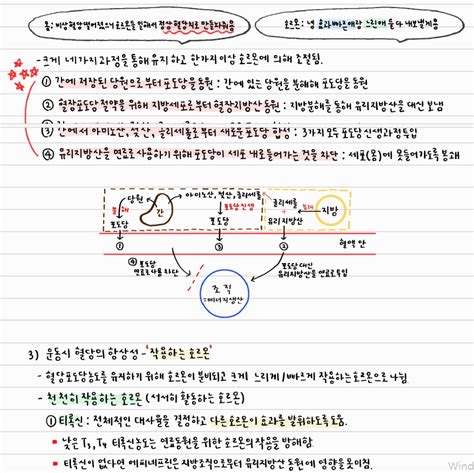 몸: 비상 혈당 떨어졌으니 호르몬을 일해서 정상 혈당치로 만들자규읭
호르몬: 넵 효과빠른애랑 느린애 둘다 내보낼게용
- 크게 네가지 과정을 통해 유지하고 한가지 이상 호르몬에 의해 조절됨.
① 간에 저장된 당원으로부터 포도당을 동원 : 간에 있는 당원을 분해해 포도당을 동원
② 혈장포도당 절약을 위해 지방세포로부터 혈장지방산 동원 : 지방분해를 통해 유리지방산을 대신 보냄
③ 간에서 아미노산, 젖산, 글리세롤로부터 새로운 포도당 합성 : 3가지 모두 포도당 신생과정 투입
④ 유리지방산을 연료로 사용하기 위해 포도당이 세포 내로 들어가는 것을 차단 : 세포(몸)에 못들어가도록 봉쇄
당원 ← 간 → 아미노산, 젖산, 글리세롤
글리세롤 + 유리지방산
분해
지방
분해
포도당
포도당신생
포도당
① ③ ②
혈액 안
④ 포도당 연료로 사용 차단
포도당 대신 유리지방산을 연료로 투입
조직
:에너지생산
3) 운동시 혈당의 항상성 - '작용하는 호르몬'
- 혈당포도당농도를 유지하기 위해 호르몬이 분비되고 크게 느리게 / 빠르게 작용하는 호르몬으로 나뉨.
- 천천히 작용하는 호르몬 (서서히 활동하는 호르몬)
① 티록신 : 전체적인 대사율을 결정하고 다른 호르몬이 효과를 발휘하도록 도움.
■ 낮은 T₃, T₄ 티록신농도는 연료동원을 위한 호르몬의 작용을 방해함.
■ 티록신이 없다면 에피네프린은 지방조직으로부터 유리지방산 동원에 영향을 못미침.
Wind